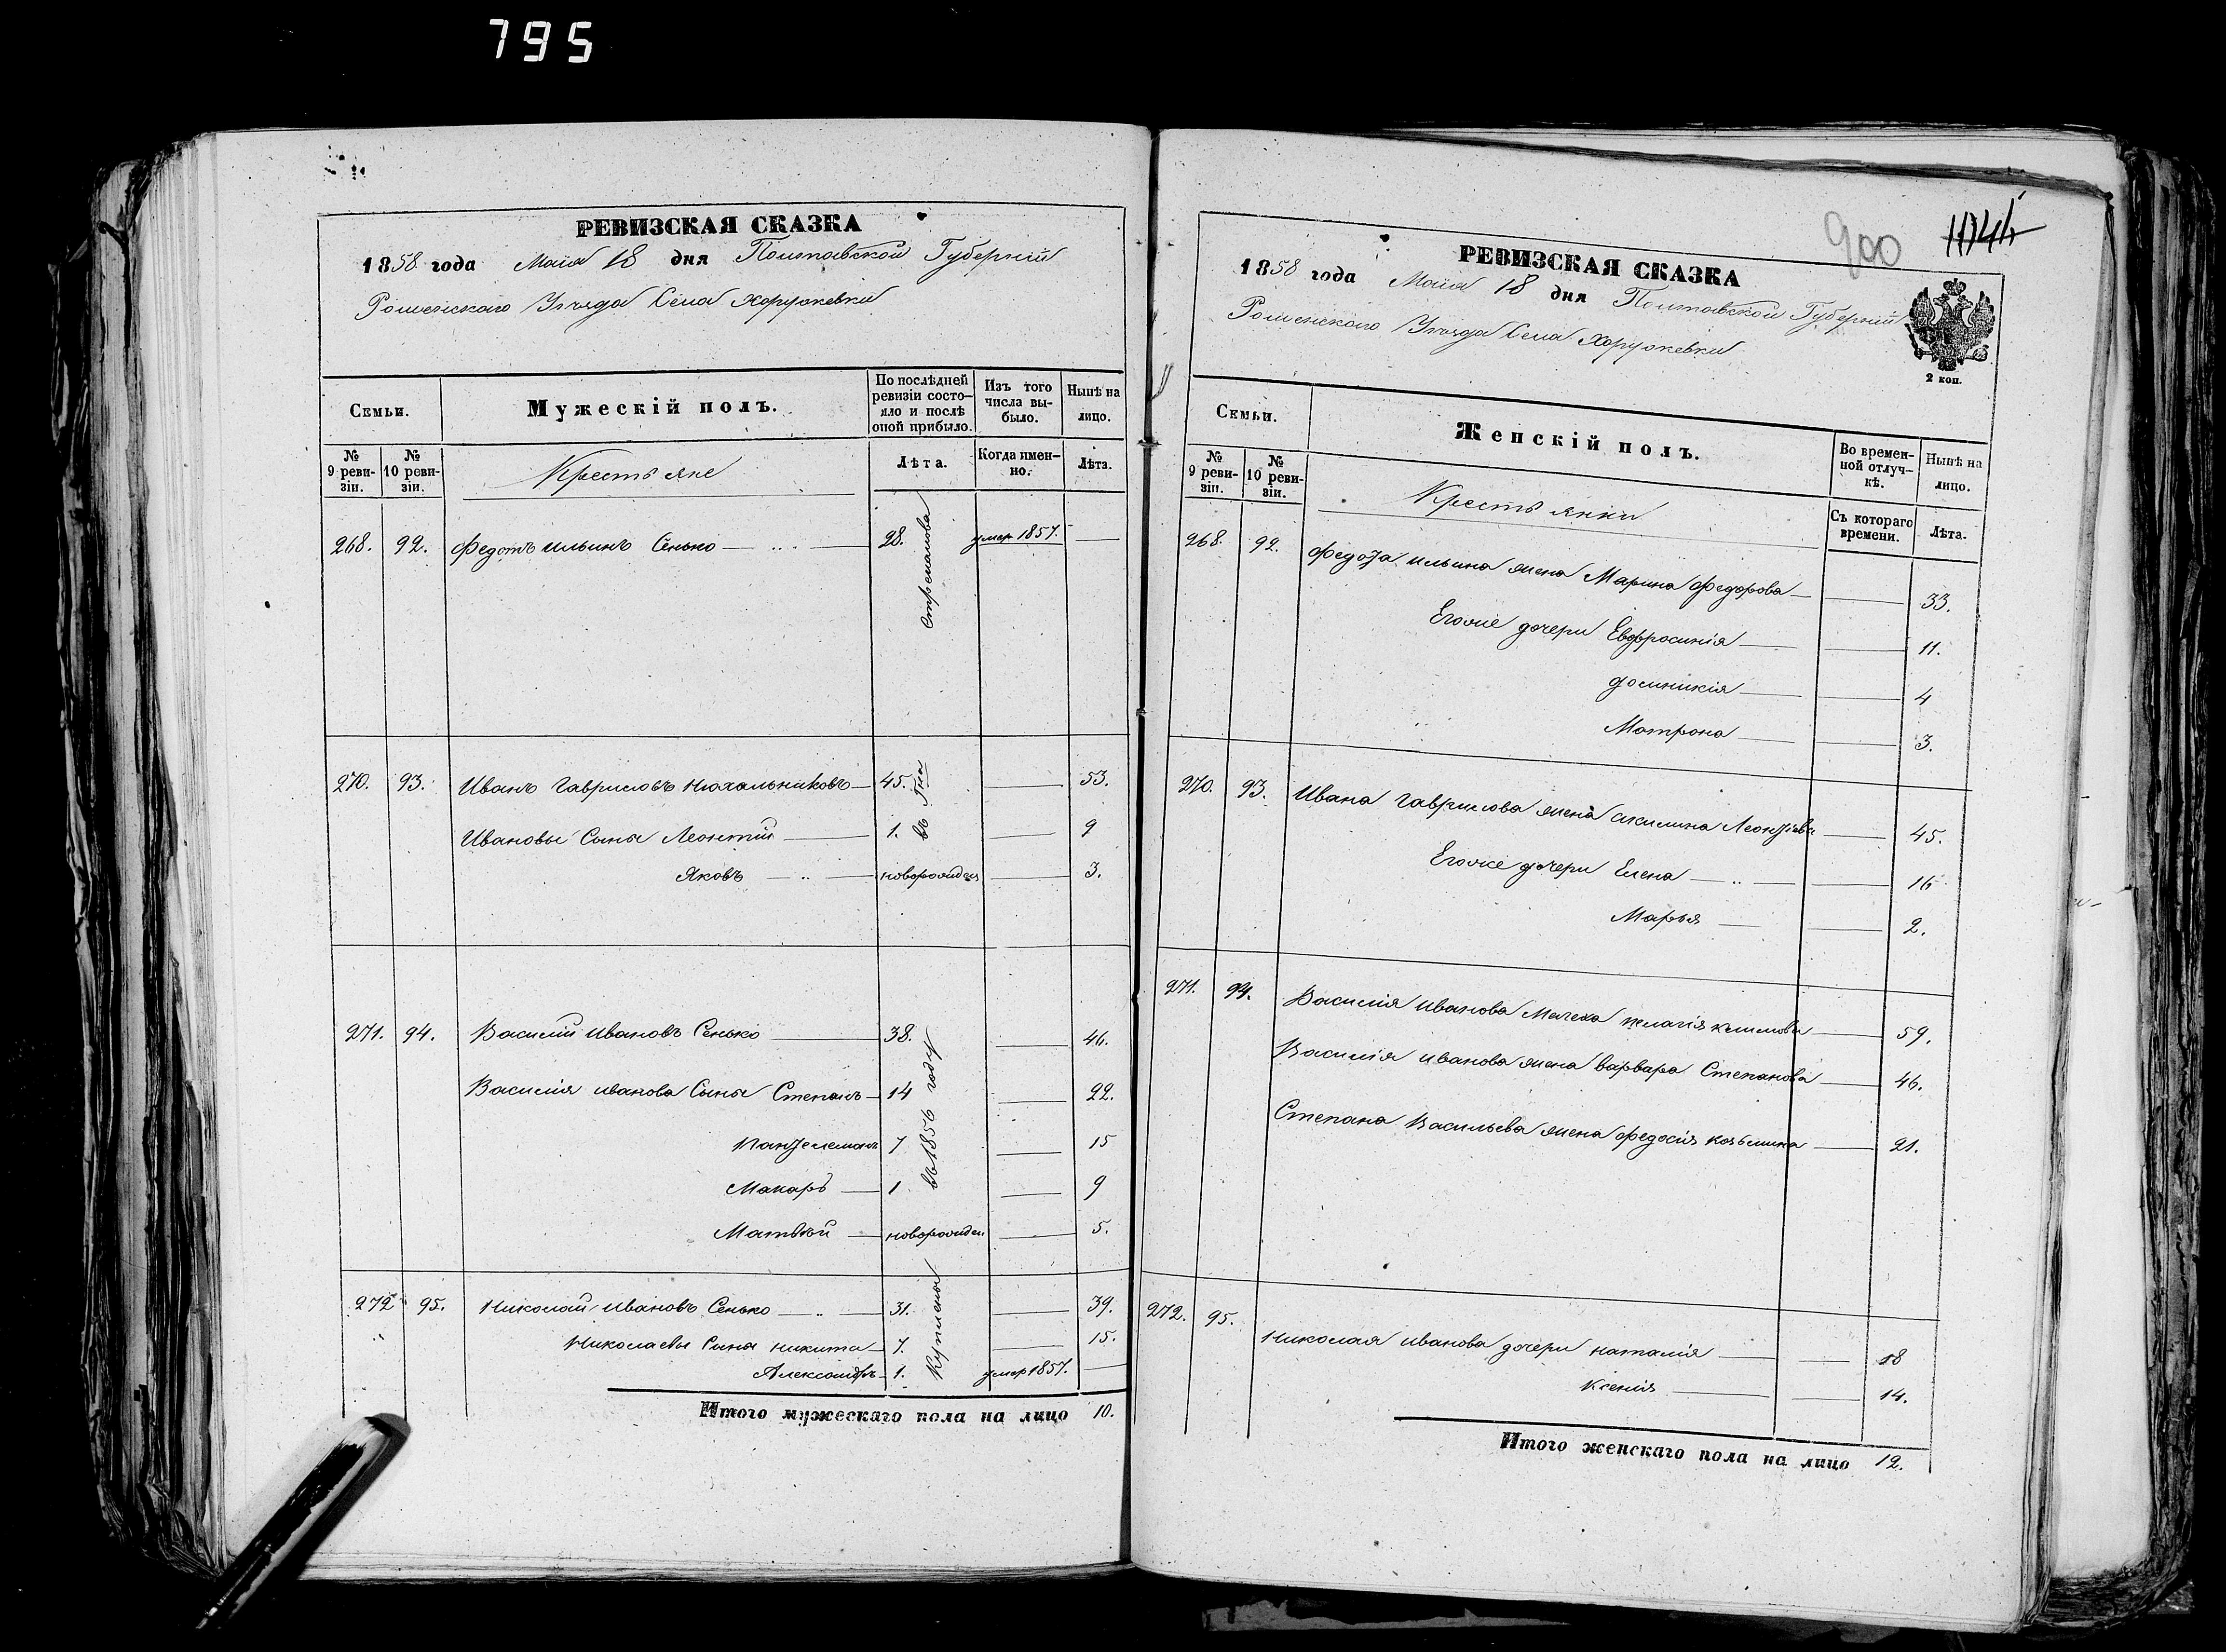 795
РЕВИЗСКАЯ СКАЗКА
1858 года Маія 18 дня Полтавской Губерніи
Роменскаго Уѣзда Села Хоружевки
Семьи.
Мужескій полъ.
По послѣдней ревизіи состояло и послѣ оной прибыло.
Изъ того числа выбыло.
Нынѣ на лицо.
№ 9 ревизіи.
№ 10 ревизіи.
Крестьяне
Лѣта.
Когда именно.
Лѣта.
268. 92. Федотъ Ильинъ Сенько 28. умер 1857.
270. 93. Иванъ Гавриловъ Нюхальниковъ 45. 53.
Ивановы Сыны Леонтій 1. 9
Яковъ новорожден 3.
271. 94. Василий Ивановъ Сенько 38. 46.
Василія Иванова Сыны Степанъ 14 22.
Пантелемонъ 7 15
Макаръ 1 9
Матвѣй новорожден 5.
272 95. Николай Ивановъ Сенько 31. 39.
Николаевы Сыны Никита 7. 15.
Александръ 1. умер 1857.
Куплены
въ 1856 году
въ Гна
Итого мужескаго пола на лицо 10.
900
РЕВИЗСКАЯ СКАЗКА
1858 года Маія 18 дня Полтавской Губерніи
Роменскаго Уѣзда Села Хоружевки
2 коп.
Семьи.
Женскій полъ.
Во временной отлучкѣ.
Нынѣ на лицо.
№ 9 ревизіи.
№ 10 ревизіи.
Крестьянки
Съ котораго времени.
Лѣта.
268. 92. Федота Ильина жена Марина Федорова 33.
Егоже дочери Евфросинія 11.
Домникія 4
Матрона 3.
270. 93. Ивана Гаврилова жена Акилина Леонтіева 45.
Егоже дочери Елена 16
Марья 2.
271. 94. Василія Иванова Мачеха Пелагія Климова 59.
Василія Иванова жена Варвара Степанова 46.
Степана Васильева жена Федосія Козьмина 21.
272. 95. Николая Иванова дочери Наталія 18
Ксенія 14.
Итого женскаго пола на лицо 12.